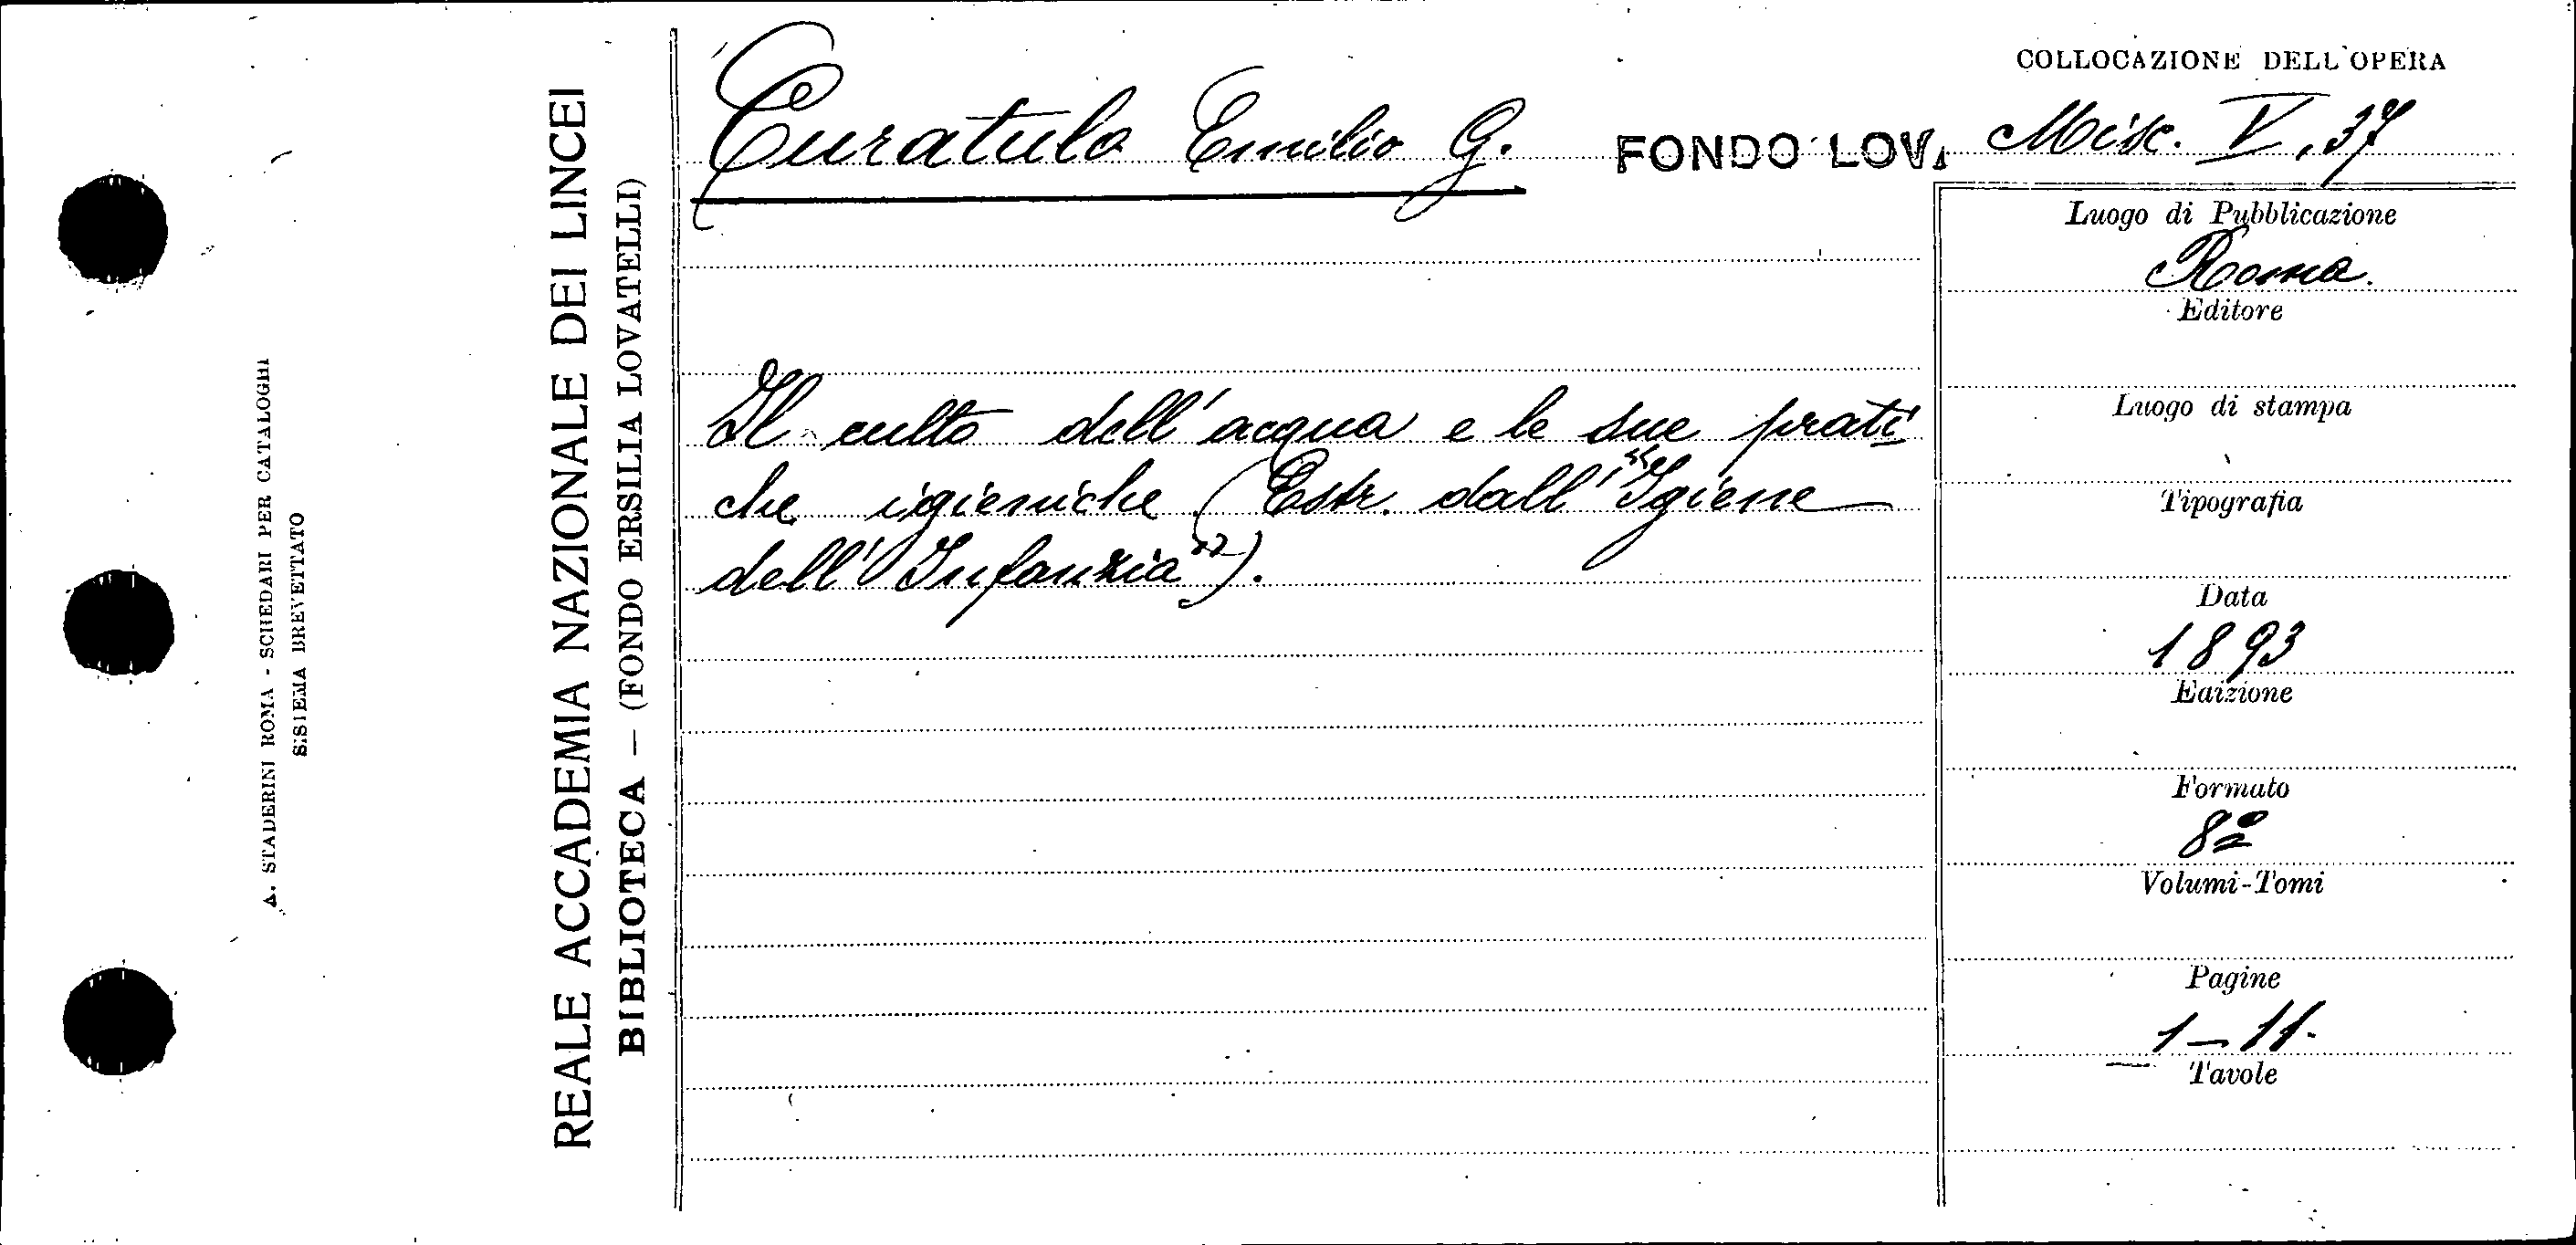 A. STADERINI ROMA - SCHEDARI PER CATALOGHI
SISTEMA BREVETTATO
REALE ACCADEMIA NAZIONALE DEI LINCEI
BIBLIOTECA — (FONDO ERSILIA LOVATELLI)
Curatulo Emilio G.
FONDO LOV.
Il culto dell'acqua e le sue prati
che igieniche (Estr. dall'"Igiene
dell'Infanzia").
COLLOCAZIONE DELL'OPERA
Misc. V, 37
Luogo di Pubblicazione
Roma.
Editore
Luogo di stampa
Tipografia
Data
1893
Edizione
Formato
8º
Volumi-Tomi
Pagine
1-11.
Tavole